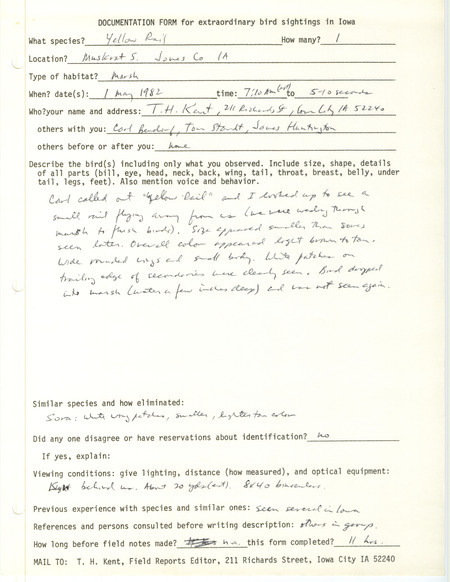 DOCUMENTATION FORM for extraordinary bird sightings in Iowa
What species? Yellow Rail How many? 1
Location? Muskrat S. Jones Co IA
Type of habitat? Marsh
When? date(s): 1 May 1982 time: 7:10 AM to 5-10 seconds
Who?your name and address: T.H. Kent, 211 Richards St, Iowa City IA 52240
others with you: Carl Bendorf, Tom Staudt, James Huntington
others before or after you: none
Describe the bird(s) including only what you observed. Include size, shape, details
of all parts (bill, eye, head, neck, back, wing, tail, throat, breast, belly, under
tail, legs, feet). Also mention voice and behavior.
Carl called out "Yellow Rail" and I looked up to see a
small rail flying away from us (we were wading through
marsh to flush birds). Size appeared smaller than Soras
seen later. Overall color appeared light brown to tan.
Wide rounded wings and small body. White patches on
trailing edge of secondaries were clearly seen. Bird dropped
into marsh (water a few inches deep) and was not seen again.
Similar species and how eliminated:
Sora: white wing patches, smaller, lighter tan color
Did any one disagree or have reservations about identification? no
If yes, explain:
Viewing conditions: give lighting, distance (how measured), and optical equipment:
light behind us. About 20 yds (est). 8x40 binoculars.
Previous experience with species and similar ones: seen several in Iowa
References and persons consulted before writing description: others in group.
How long before field notes made? n.a. this form completed? 11 hrs.
MAIL TO: T. H. Kent, Field Reports Editor, 211 Richards Street, Iowa City IA 52240